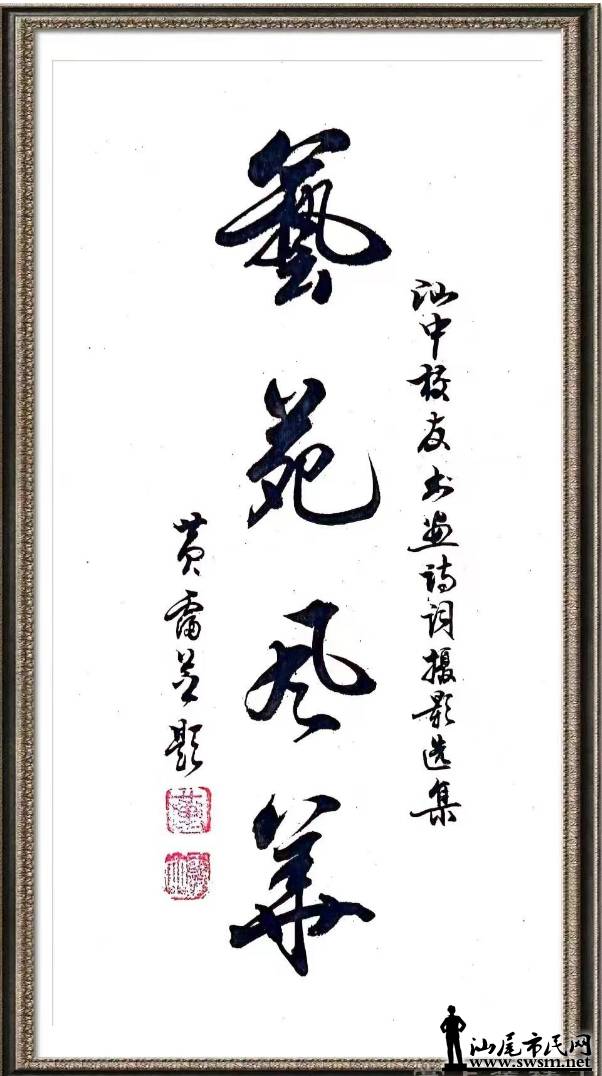 汕中校友书画诗词摄影选集
藝苑风華
黄题
汕尾市民网
www.swsm.net